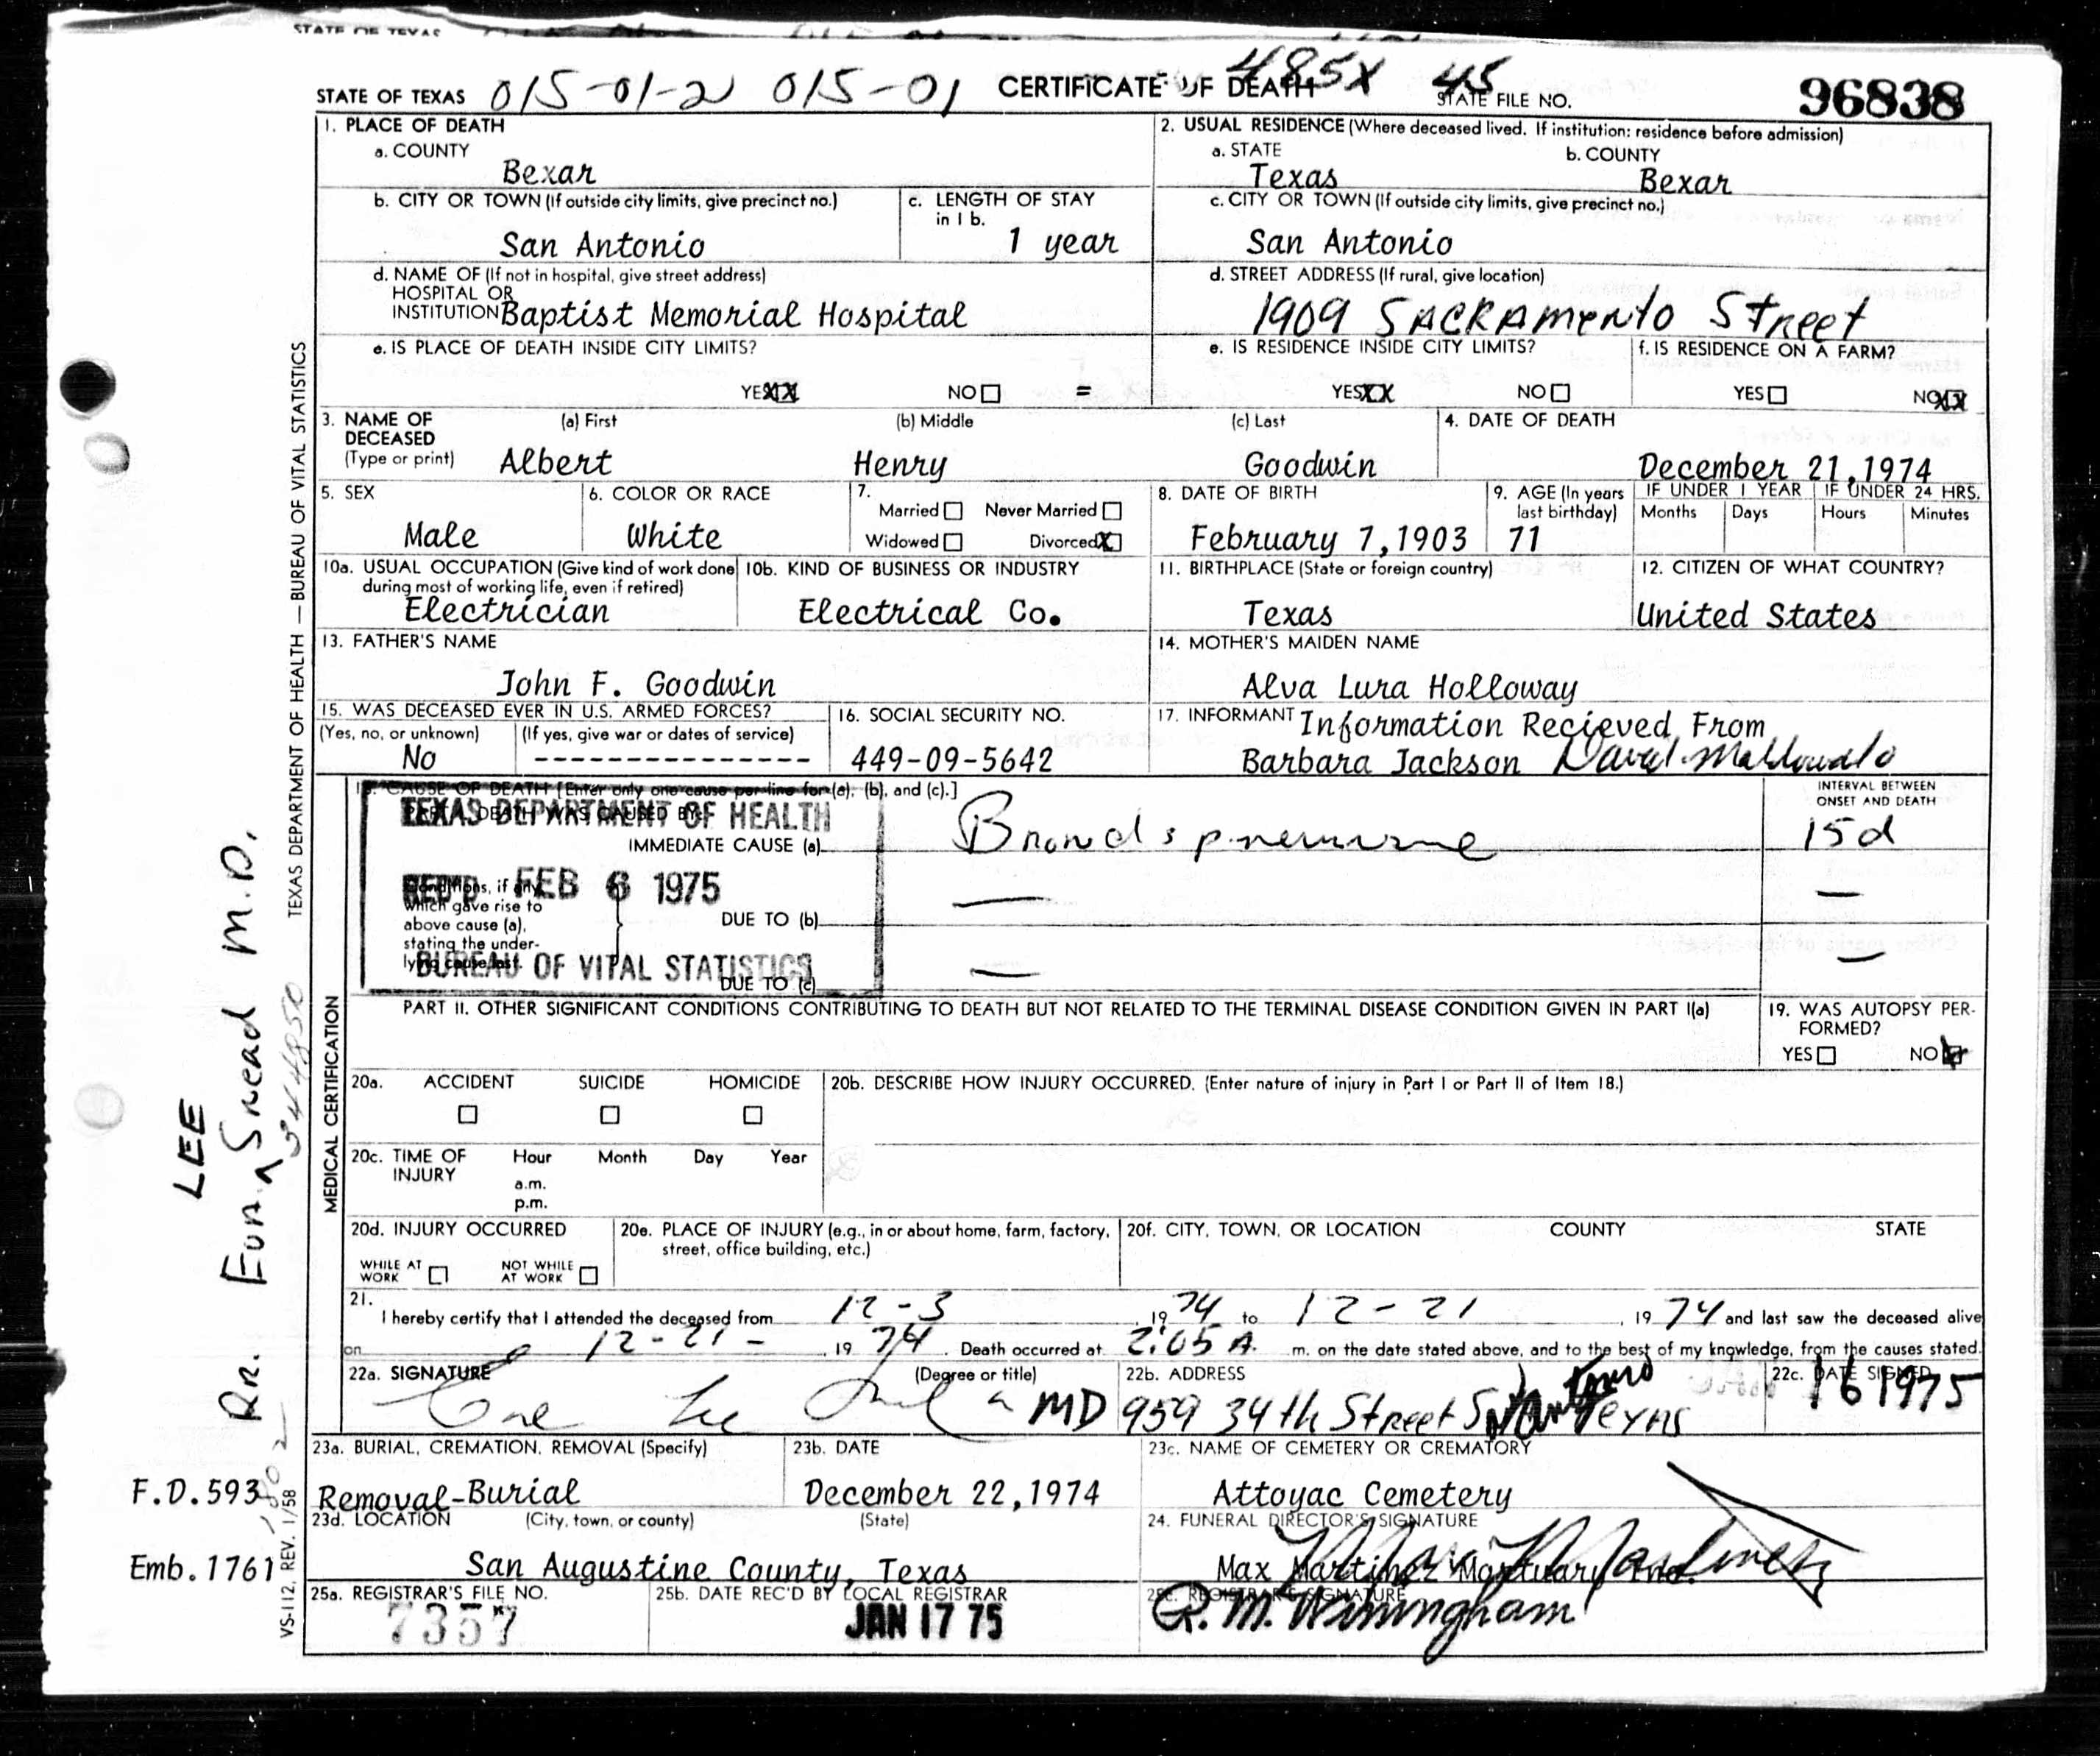 STATE OF TEXAS
STATE OF TEXAS 015-01-2 015-01 CERTIFICATE OF DEATH 485X 45 STATE FILE NO. 96838
1. PLACE OF DEATH
a. COUNTY
Bexar
2. USUAL RESIDENCE (Where deceased lived. If institution: residence before admission)
a. STATE b. COUNTY
Texas Bexar
b. CITY OR TOWN (If outside city limits, give precinct no.)
San Antonio
c. LENGTH OF STAY
in 1 b.
1 year
c. CITY OR TOWN (If outside city limits, give precinct no.)
San Antonio
d. NAME OF (If not in hospital, give street address)
HOSPITAL OR
INSTITUTION Baptist Memorial Hospital
d. STREET ADDRESS (If rural, give location)
1909 SACRAMENTO STREET
e. IS PLACE OF DEATH INSIDE CITY LIMITS?
YES XX NO =
e. IS RESIDENCE INSIDE CITY LIMITS?
YES XX NO
f. IS RESIDENCE ON A FARM?
YES NO XX
3. NAME OF
DECEASED
(Type or print)
(a) First (b) Middle (c) Last
Albert Henry Goodwin
4. DATE OF DEATH
December 21,1974
5. SEX
Male
6. COLOR OR RACE
White
7.
Married Never Married
Widowed Divorced X
8. DATE OF BIRTH
February 7,1903
9. AGE (In years
last birthday)
71
IF UNDER 1 YEAR IF UNDER 24 HRS.
Months Days Hours Minutes
10a. USUAL OCCUPATION (Give kind of work done
during most of working life, even if retired)
Electrician
10b. KIND OF BUSINESS OR INDUSTRY
Electrical Co.
11. BIRTHPLACE (State or foreign country)
Texas
12. CITIZEN OF WHAT COUNTRY?
United States
13. FATHER'S NAME
John F. Goodwin
14. MOTHER'S MAIDEN NAME
Alva Lura Holloway
15. WAS DECEASED EVER IN U.S. ARMED FORCES?
(Yes, no, or unknown) (If yes, give war or dates of service)
No ---------------
16. SOCIAL SECURITY NO.
449-09-5642
17. INFORMANT Information Recieved From
Barbara Jackson
18. CAUSE OF DEATH [Enter only one cause per line for (a), (b), and (c).]
TEXAS DEPARTMENT OF HEALTH
REC'D FEB 6 1975
BUREAU OF VITAL STATISTICS
IMMEDIATE CAUSE (a)
Conditions, if any,
which gave rise to
above cause (a),
stating the under-
lying cause last.
DUE TO (b)
DUE TO (c)
INTERVAL BETWEEN
ONSET AND DEATH
15d
PART II. OTHER SIGNIFICANT CONDITIONS CONTRIBUTING TO DEATH BUT NOT RELATED TO THE TERMINAL DISEASE CONDITION GIVEN IN PART I(a)
19. WAS AUTOPSY PER-
FORMED?
YES NO
20a. ACCIDENT SUICIDE HOMICIDE
20b. DESCRIBE HOW INJURY OCCURRED. (Enter nature of injury in Part I or Part II of Item 18.)
20c. TIME OF
INJURY
Hour Month Day Year
a.m.
p.m.
20d. INJURY OCCURRED
WHILE AT
WORK
NOT WHILE
AT WORK
20e. PLACE OF INJURY (e.g., in or about home, farm, factory,
street, office building, etc.)
20f. CITY, TOWN, OR LOCATION COUNTY STATE
21.
I hereby certify that I attended the deceased from 12-3, 1974 to 12-21, 1974 and last saw the deceased alive
on 12-21-, 1974. Death occurred at 2:05 A. m. on the date stated above, and to the best of my knowledge, from the causes stated.
22a. SIGNATURE (Degree or title)
MD
22b. ADDRESS
959 34th STREET San Antonio TEXAS
22c. DATE SIGNED
16 1975
23a. BURIAL, CREMATION, REMOVAL (Specify)
Removal-Burial
23b. DATE
December 22,1974
23c. NAME OF CEMETERY OR CREMATORY
Attoyac Cemetery
23d. LOCATION (City, town, or county) (State)
San Augustine County, Texas
24. FUNERAL DIRECTOR'S SIGNATURE
Max Martinez Mortuary Inc.
25a. REGISTRAR'S FILE NO.
7357
25b. DATE REC'D BY LOCAL REGISTRAR
JAN 17 75
25c. REGISTRAR'S SIGNATURE
TEXAS DEPARTMENT OF HEALTH — BUREAU OF VITAL STATISTICS
MEDICAL CERTIFICATION
VS-112, REV. 1/58
LEE
Snead M.D.
F.D.593
Emb.1761